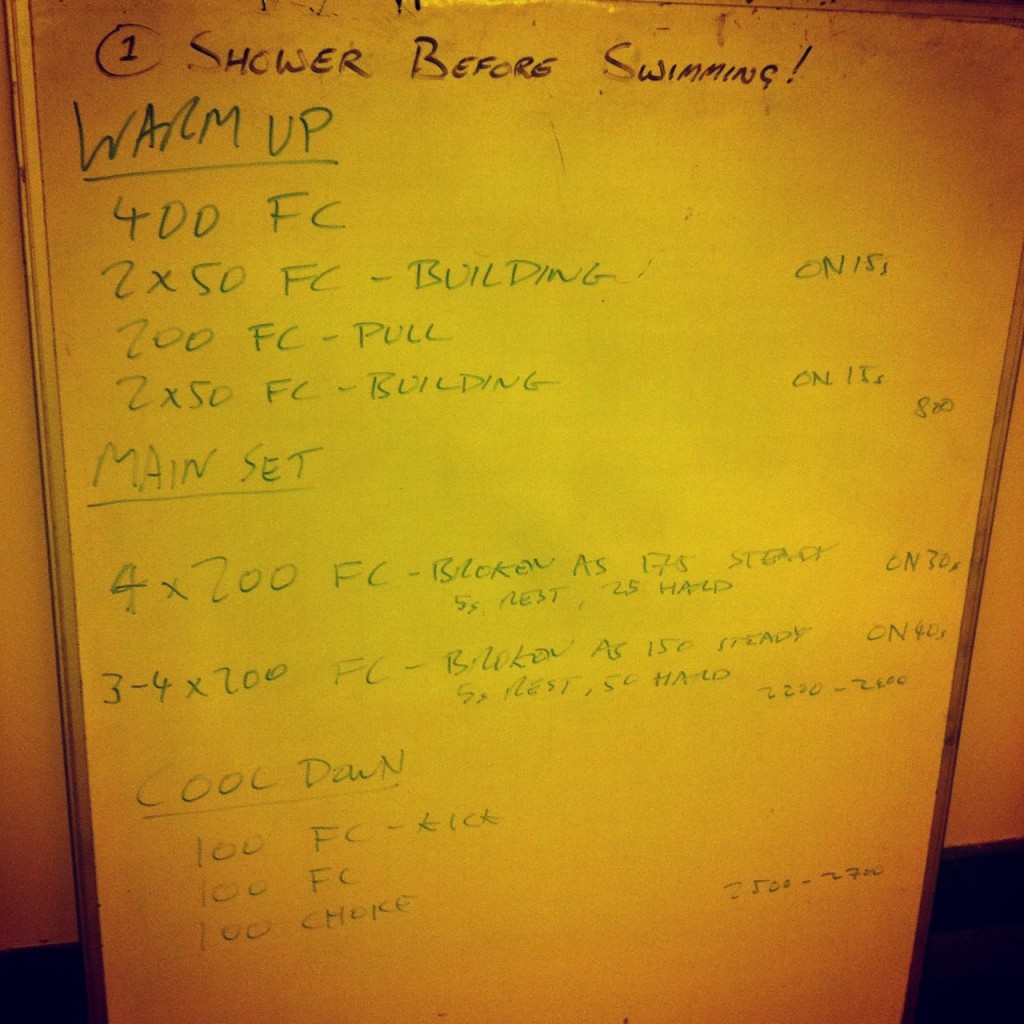 ① SHOWER BEFORE SWIMMING!
WARM UP
400 FC
2x50 FC - BUILDING ON 15s
200 FC - PULL
2x50 FC - BUILDING ON 15s
800
MAIN SET
4x200 FC - BROKEN AS 175 STEADY ON 30s
5s REST, 25 HARD
3-4x200 FC - BROKEN AS 150 STEADY ON 40s
5s REST, 50 HARD 2200-2400
COOL DOWN
100 FC - KICK
100 FC
100 CHOICE 2500-2700